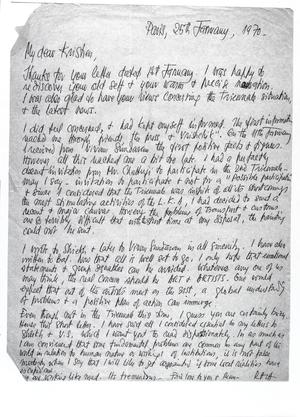 Paris, 25th January, 1970.
My dear Krishen,
Thanks for your letter dated 1st January. I was happy to
rediscover your old self & your warm & precise
I was also glad to have your views concerning the Triennale situation,
& the latest news.
I did feel concerned, & had kept myself informed. The first information
reached me through friends, the press & "Vrishchik". On the 11th January,
I received from Vivan Sundaram the first positive facts & figures.
However, all this reached me a bit too late. I had a perfectly
decent invitation from Mr. Chatterji to participate in the 2nd Triennale.
may I say - invitation to participate & not for a "possible participation"
& since I considered that the Triennale was inspite of all its shortcomings
the most stimulating activities of the L.K.A, I had decided to send a
recent & major canvas. However the problems of transport & customs
are so terribly difficult that with short time at my disposal, the painting
could not be sent.
I wrote to Shicks, & later to Vivan Sundaram in all sincerity. I have also
written to Bal. Now that all is well set to go. I only hope that emotional
statements & group squabbles can be avoided. Whatever any one of us
may think, the real concern should be ART & ARTISTS. One would
expect that out of the artists meet in the east, a global understanding
of problems & a positive plan of action can emerge.
Even though not in the Triennale this time, I guess you are certainly busy,
hence this short letter. I have said all I considered essential in my letters to
Shicks & V.S. which I want you to read dispassionately. In as much as
I am convinced that some fundamental problems are common in any part of the
world in relation to human nature or workings of institutions, it is not false
modesty when I say that I will like to get acquainted to some local realities
I am working like mad.